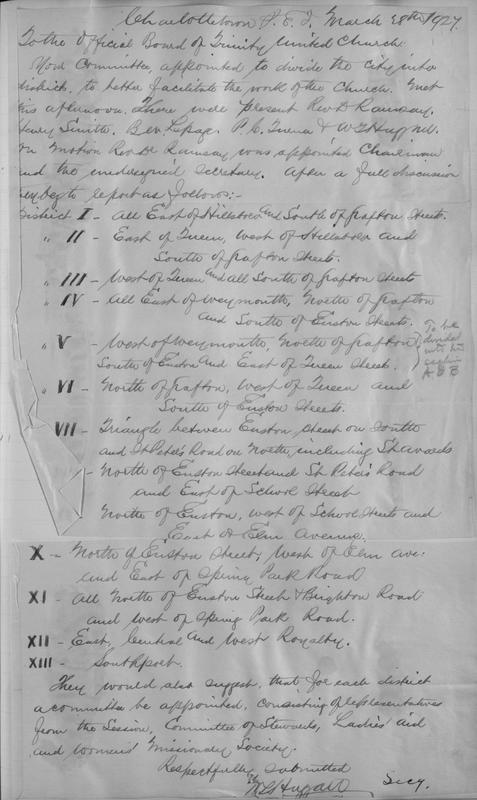 Charlottetown P.E.I. March 28th 1927.
To the Official Board of Trinity United Church.
Your Committee, appointed to divide the city into
districts, to better facilitate the work of the Church. Met
this afternoon. There were present Rev Dr Ramsay,
Henry Smith. Bev. Lepage. P.C. & W.G. Huggard.
On motion Rev Dr Ramsay was appointed Chairman
and the undersigned Secretary. After a full discussion
they beg to report as follows:-
District I - All East of Hillsboro and South of Grafton Streets.
" II - East of Queen, West of Hillsboro and
South of Grafton Streets.
" III - West of Queen and all South of Grafton Streets
" IV - All East of Weymouth, North of Grafton
and South of Euston Streets.
" V - West of Weymouth, North of Grafton
South of Euston and East of Queen Streets.
To be
divided
into two
sections
A & B
" VI - North of Grafton, West of Queen and
South of Euston Streets.
VII - Triangle between Euston Street on South
and St Peter's Road on North, including St Avards
- North of Euston Street and St Peter's Road
and East of School Street
North of Euston, West of School Streets and
East of Elm Avenue.
X - North of Euston Street, West of Elm ave.
and East of Spring Park Road
XI - All North of Euston Street & Brighton Road
and West of Spring Park Road.
XII - East, Central and West Royalty.
XIII - Southport.
They would also suggest, that for each district
a committee be appointed, consisting of representatives
from the Session, Committee of Stewards, Ladies' aid
and Womens' Missionary Society.
Respectfully submitted
W.G. Huggard Secy.